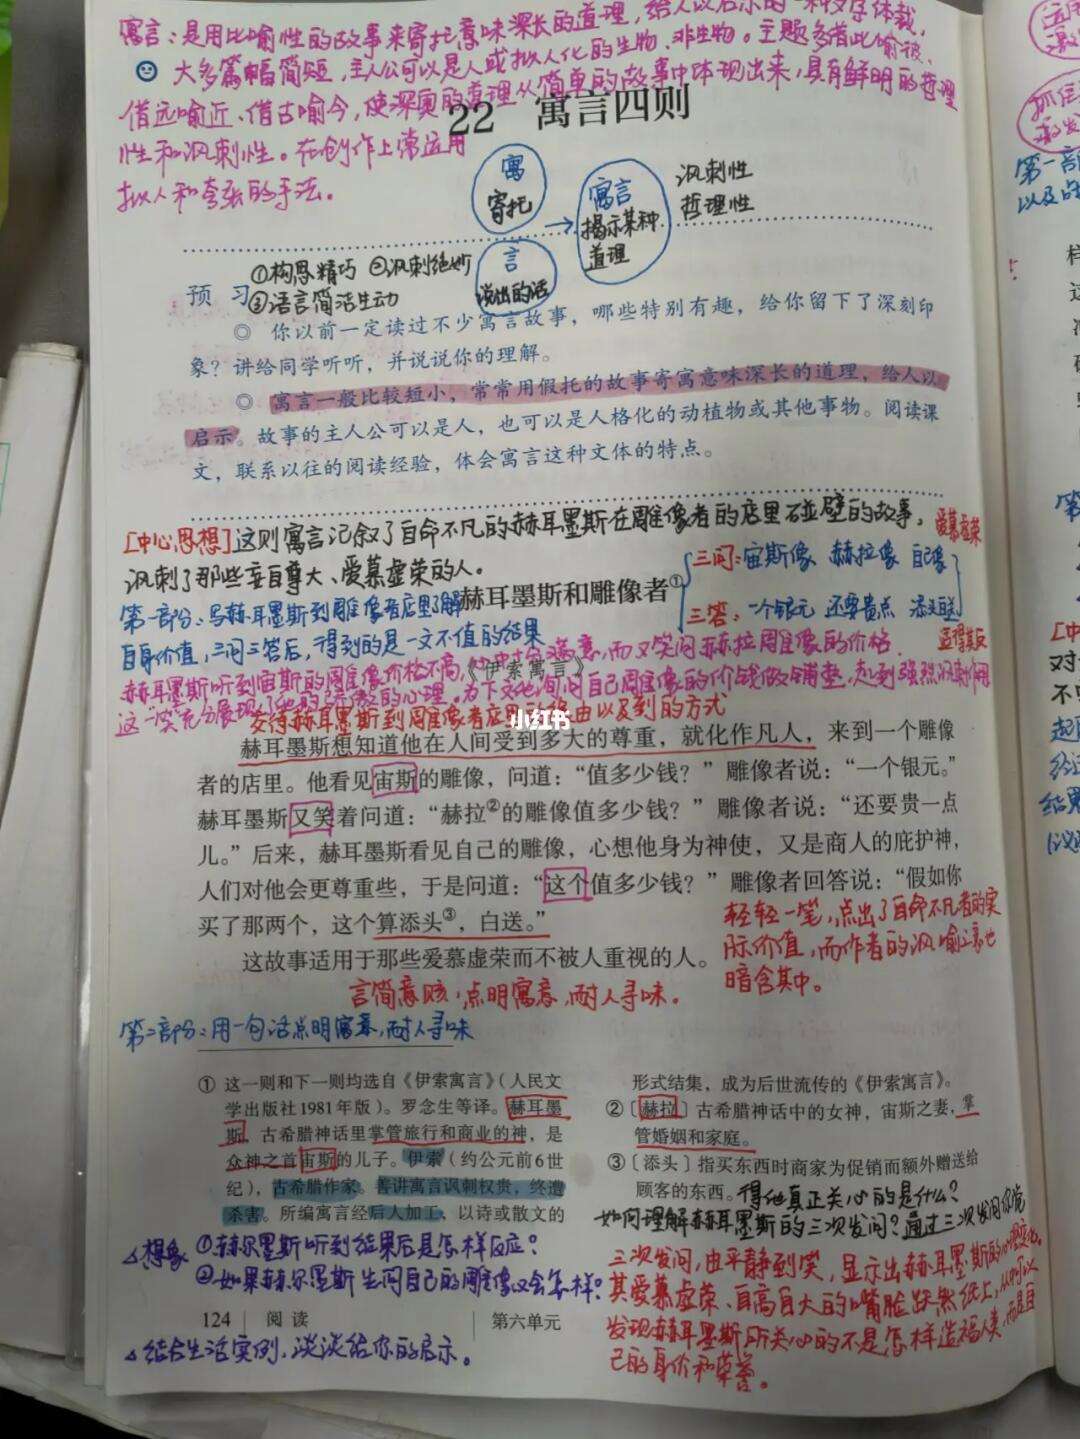 寓言：是用比喻性的故事来寄托意味深长的道理，给人以启示的一种文学体裁，
大多篇幅简短，主人公可以是人或拟人化的生物、非生物。主题多借此喻彼、
借远喻近、借古喻今，使深奥的道理从简单的故事中体现出来，具有鲜明的哲理
性和讽刺性。在创作上常运用
拟人和夸张的手法。
22 寓言四则
寓
寄托
言
说出的话
寓言
揭示某种
道理
讽刺性
哲理性
①构思精巧 ②讽刺绝妙
③语言简洁生动
预 习
◎ 你以前一定读过不少寓言故事，哪些特别有趣，给你留下了深刻印
象？讲给同学听听，并说说你的理解。
◎ 寓言一般比较短小，常常用假托的故事寄寓意味深长的道理，给人以
启示。故事的主人公可以是人，也可以是人格化的动植物或其他事物。阅读课
文，联系以往的阅读经验，体会寓言这种文体的特点。
[中心思想]这则寓言记叙了自命不凡的赫耳墨斯在雕像者的店里碰壁的故事，
讽刺了那些妄自尊大、爱慕虚荣的人。
爱慕虚荣
三问：宙斯像 赫拉像 自己像
三答：一个银元 还要贵点 添头白送
适得其反
赫耳墨斯和雕像者①
第一部分：写赫耳墨斯到雕像者店里了解
自身价值，三问三答后，得到的是一文不值的结果
《伊索寓言》
赫耳墨斯听到宙斯的雕像价格不高，心中十分满意，而又笑问赫拉雕像的价格.
这一"笑"充分展现了他的骄傲的心理，为下文他询问自己雕像的价钱做铺垫，起到强烈讽刺作用
交待赫耳墨斯到雕像者店里的缘由以及到的方式
小红书
赫耳墨斯想知道他在人间受到多大的尊重，就化作凡人，来到一个雕像
者的店里。他看见宙斯的雕像，问道：“值多少钱？”雕像者说：“一个银元。”
赫耳墨斯又笑着问道：“赫拉②的雕像值多少钱？”雕像者说：“还要贵一点
儿。”后来，赫耳墨斯看见自己的雕像，心想他身为神使，又是商人的庇护神，
人们对他会更尊重些，于是问道：“这个值多少钱？”雕像者回答说：“假如你
买了那两个，这个算添头③，白送。”
轻轻一笔，点出了自命不凡者的实
际价值，而作者的讽喻之意也
暗含其中。
这故事适用于那些爱慕虚荣而不被人重视的人。
言简意赅，点明寓意，耐人寻味。
第二部份：用一句话点明寓意，耐人寻味
① 这一则和下一则均选自《伊索寓言》（人民文
学出版社1981年版）。罗念生等译。赫耳墨
斯，古希腊神话里掌管旅行和商业的神，是
众神之首宙斯的儿子。伊索（约公元前6世
纪），古希腊作家。善讲寓言讽刺权贵，终遭
杀害。所编寓言经后人加工，以诗或散文的
形式结集，成为后世流传的《伊索寓言》。
②〔赫拉〕古希腊神话中的女神，宙斯之妻，掌
管婚姻和家庭。
③〔添头〕指买东西时商家为促销而额外赠送给
顾客的东西。
得他真正关心的是什么？
如何理解赫耳墨斯的三次发问？通过三次发问你觉
三次发问，由平静到笑，显示出赫耳墨斯的心理变化。
其爱慕虚荣、自高自大的嘴脸跃然纸上，从中可以
发现赫耳墨斯所关心的不是怎样造福人类，而是自
己的身价和荣誉。
△想象 ①赫尔墨斯听到结果后是怎样反应？
②如果赫尔墨斯先问自己的雕像又会怎样？
124 阅 读
第六单元
△结合生活实例，谈谈给你的启示。